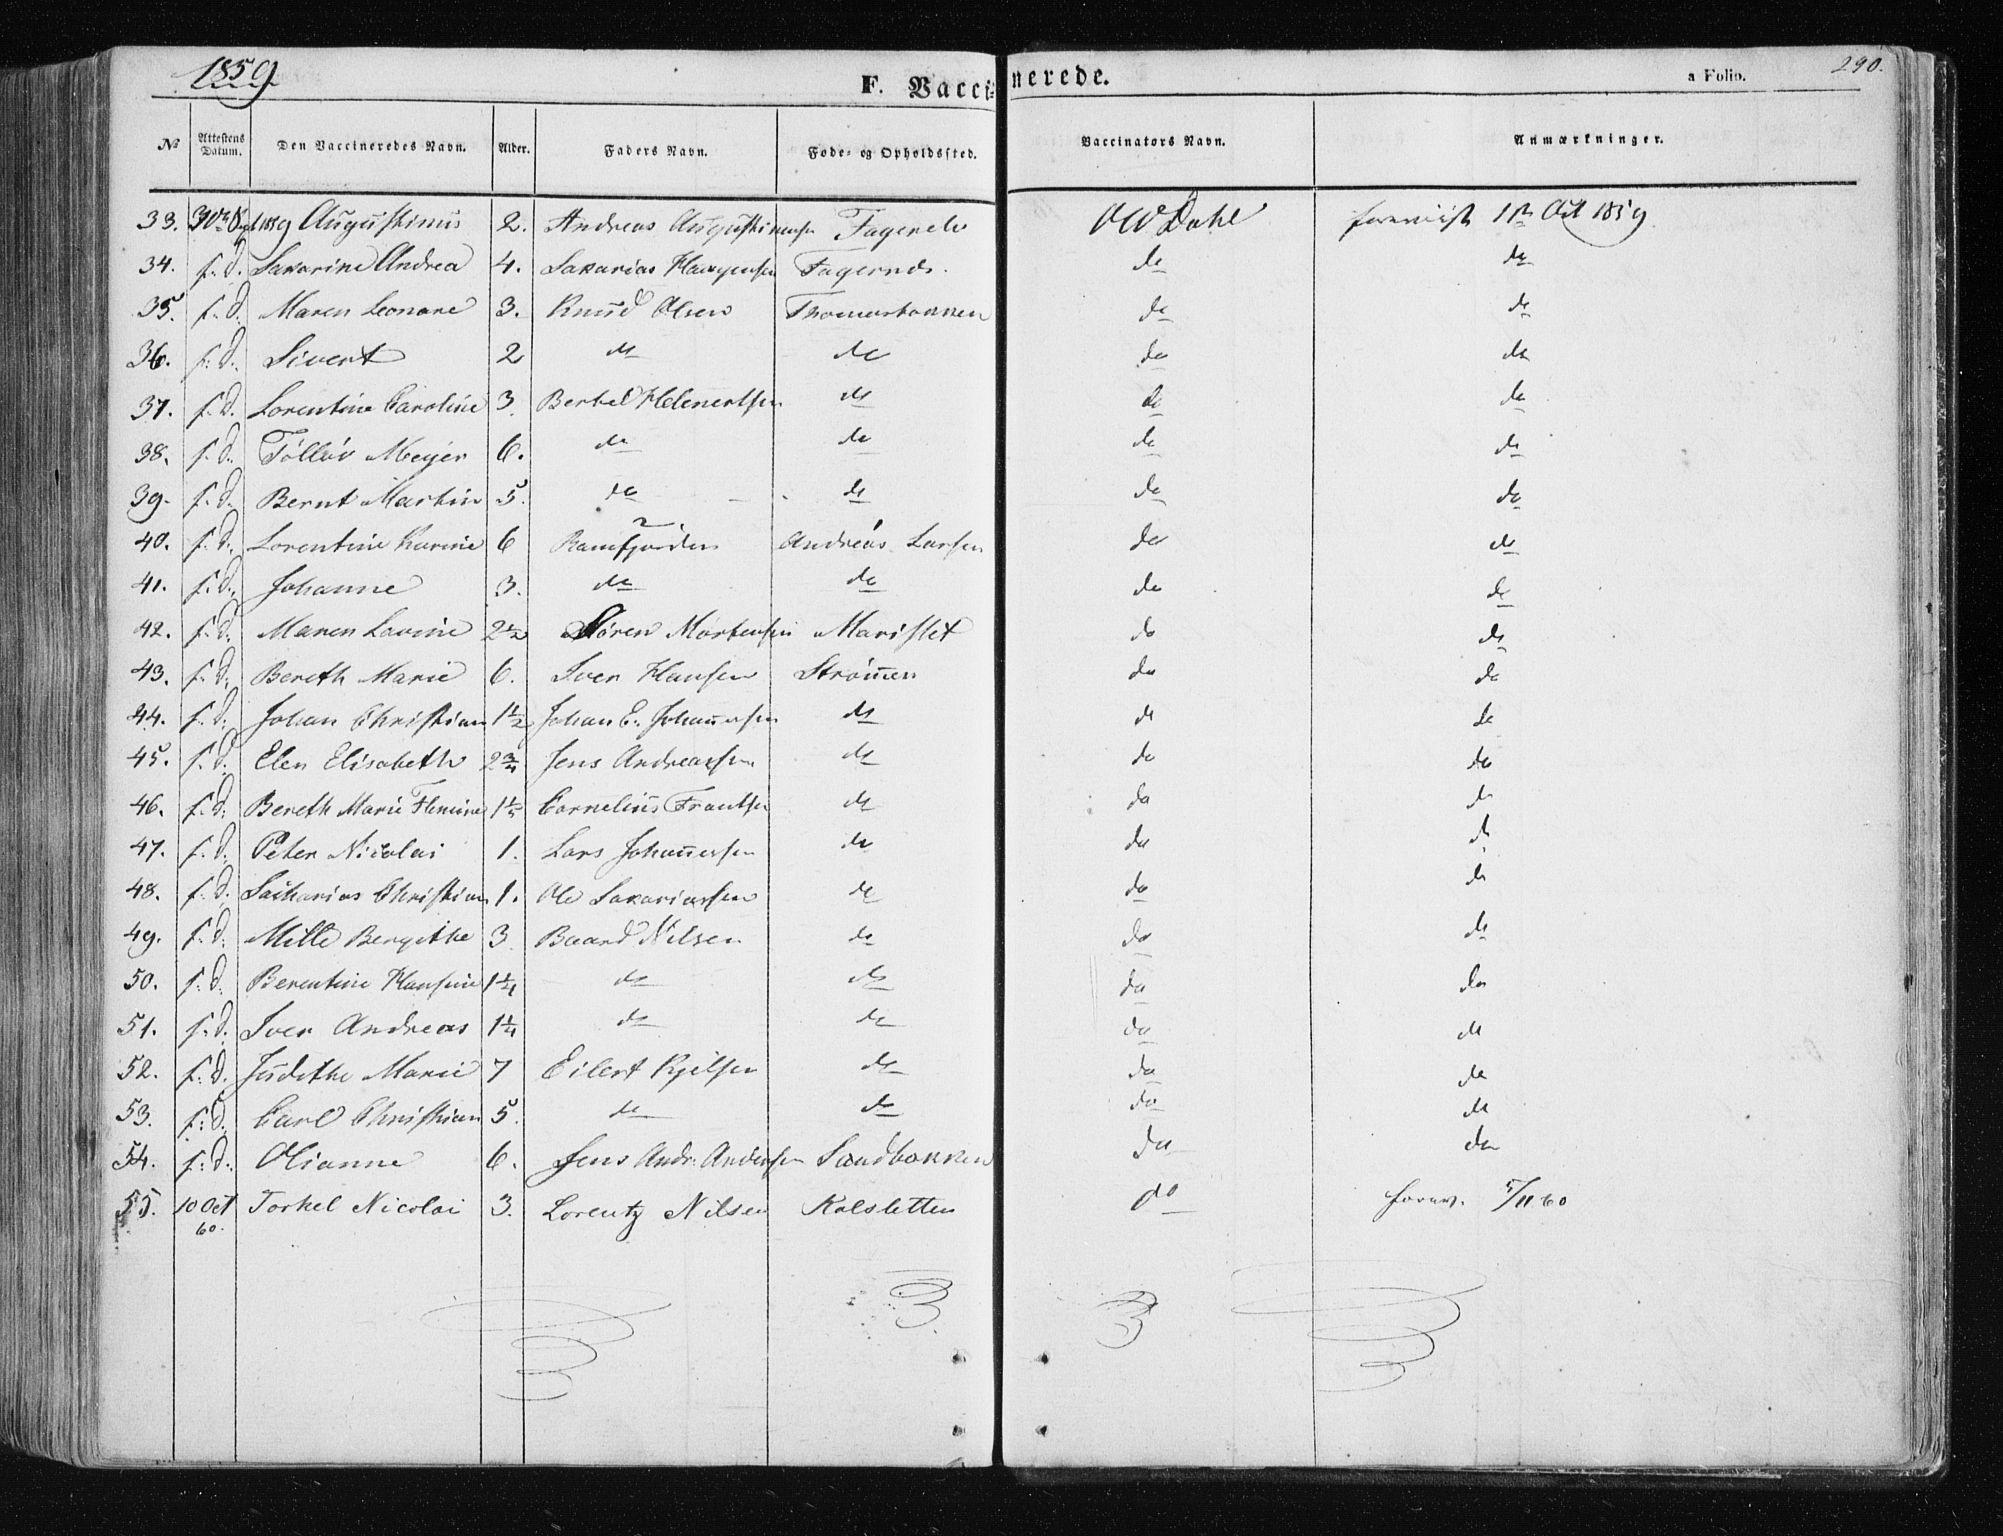 1859
F. Vaccinerede.
a Folio. 290.
№ Attestens Datum. Den Vaccineredes Navn. Alder. Faders Navn. Føde- og Opholdssted. Vaccinators Navn. Anmærkninger.
33. 30te Sept 1859 Augustinus 2. Andreas Augustinussen Fagerels OW Dahl foreviist 1ste Oct 1859
34. s. d. Sakarine Andrea 4. Sakarias Haagensen Fagernds. do do
35. s. d. Maren Leonare 3. Knud Olsen Thomasbakken do do
36. s. d. Sivert 2 do do do do
37. s. d. Lorentine Caroline 3. Berthel Helmertsen do do do
38. s. d. Tølløv Meyer 6. do do do do
39. s. d. Bernt Martin 5. do do do do
40. s. d. Lorentine Karine 6 Ramfjorden 2 Andreas Larsen do do
41. s. d. Johanne 3. do do do do
42. s. d. Maren Lovine 2½ Søren Mortensen Marislet do do
43. s. d. Bereth Marie 6. Iver Hansen Strømen do do
44. s. d. Johan Christian 1½ Johan E. Johannesen do do do
45. s. d. Elen Elisabeth 2¾ Jens Andreassen do do do
46. s. d. Bereth Marie Flemine 1⅕ Cornelius Frantsen do do do
47. s. d. Peter Nicolai 1. Lars Johannesen do do d
48. s. d. Sacharias Christian 1. Ole Sakariassen do do do
49. s. d. Mille Bergithe 3 Baard Nilsen do do do
50. s. d. Berentine Hansine 1¼ do do do do
51. s. d. Iver Andreas 1¼ do do do do
52. s. d. Judithe Marie 7 Eilert Kjelsen do do do
53. s. d. Carl Christian 5. do do do do
54. s. d. Olianne 6. Jens Andr. Andersen Sandbakken do do
55. 10 Oct 60. Torkel Nicolai 3. Lorentz Nilsen Kalsletten do forev. 5/11 60